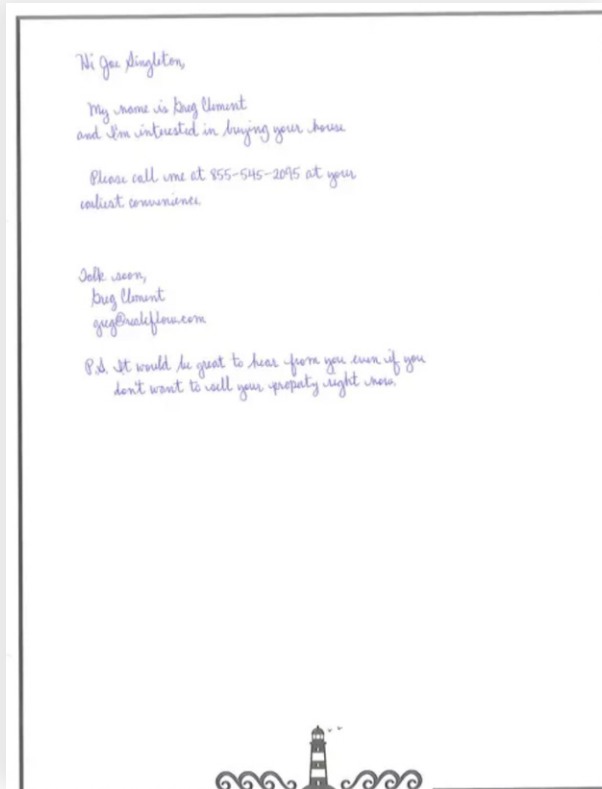 Hi Joe Singleton,
My name is Greg Clement
and I'm interested in buying your house
Please call me at 855-545-2095 at your
earliest convenience
Talk soon,
Greg Clement
greg@realeflow.com
P.S. It would be great to hear from you even if you
don't want to sell your property right now.